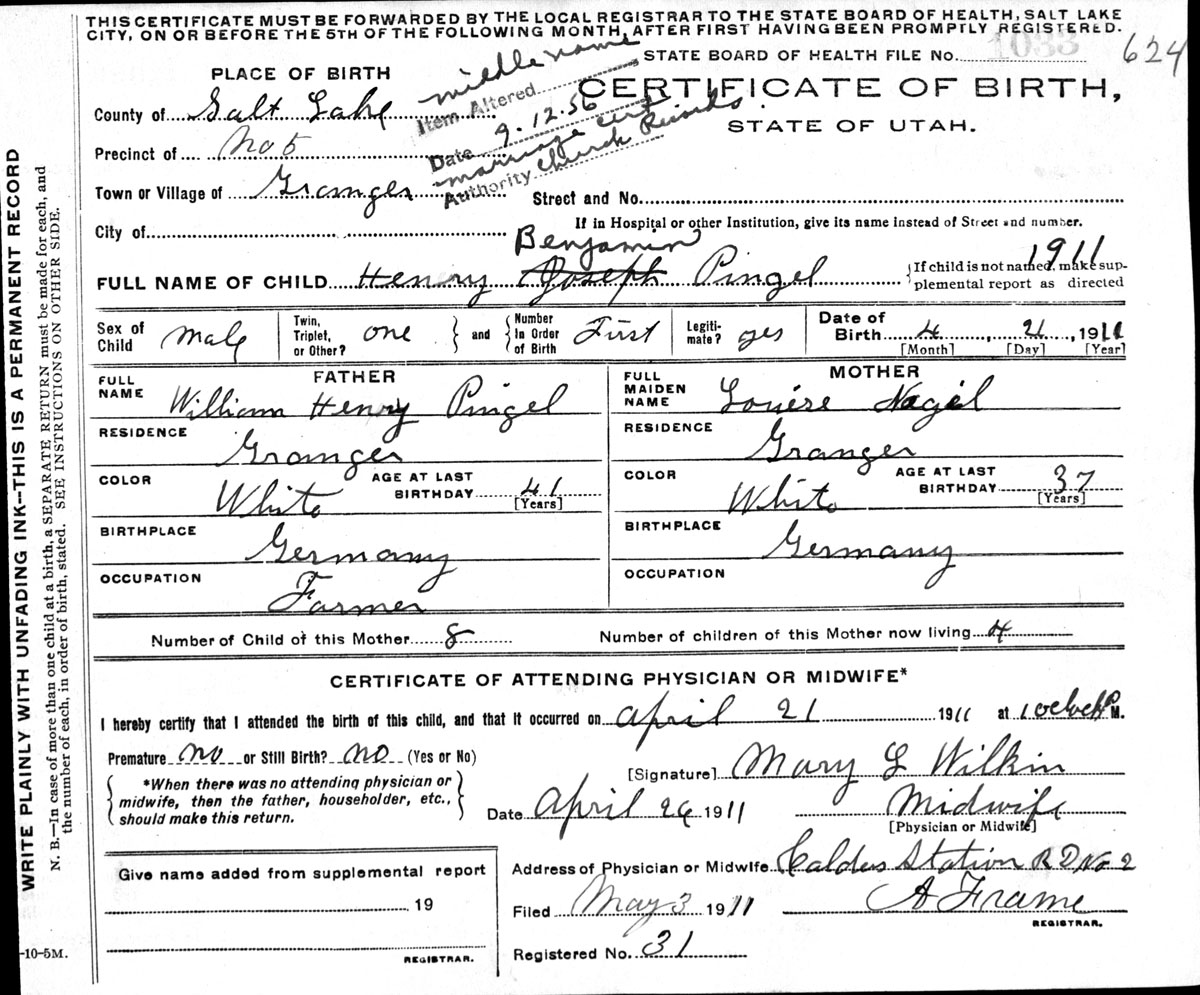 THIS CERTIFICATE MUST BE FORWARDED BY THE LOCAL REGISTRAR TO THE STATE BOARD OF HEALTH, SALT LAKE
CITY, ON OR BEFORE THE 5TH OF THE FOLLOWING MONTH, AFTER FIRST HAVING BEEN PROMPTLY REGISTERED.
STATE BOARD OF HEALTH FILE No. 1033 624
PLACE OF BIRTH
middle name
Item Altered
Date 9.12.56
marriage cert
Authority Church Records
CERTIFICATE OF BIRTH,
STATE OF UTAH.
County of Salt Lake
Precinct of No 5
Town or Village of Granger
Street and No.
If in Hospital or other Institution, give its name instead of Street and number.
City of
Benjamin
1911
FULL NAME OF CHILD Henry Joseph Pingel
{If child is not named, make sup-
plemental report as directed
Sex of Child Male
Twin, Triplet, or Other? one
} and {
Number In Order of Birth First
Legiti-mate? yes
Date of Birth 4, 21, 1911
[Month] [Day] [Year]
FATHER
FULL NAME William Henry Pingel
RESIDENCE Granger
COLOR White
AGE AT LAST BIRTHDAY 41
[Years]
BIRTHPLACE Germany
OCCUPATION Farmer
MOTHER
FULL MAIDEN NAME Louise Nagel
RESIDENCE Granger
COLOR White
AGE AT LAST BIRTHDAY 37
[Years]
BIRTHPLACE Germany
OCCUPATION
Number of Child of this Mother 8
Number of children of this Mother now living 4
CERTIFICATE OF ATTENDING PHYSICIAN OR MIDWIFE*
I hereby certify that I attended the birth of this child, and that it occurred on April 21 1911 at 1 oclock P M.
Premature no or Still Birth? no (Yes or No)
{ *When there was no attending physician or
midwife, then the father, householder, etc.,
should make this return. }
[Signature] Mary L Wilkin
Date April 26 1911
Midwife
[Physician or Midwife]
Address of Physician or Midwife Calders Station R D No 2
Give name added from supplemental report
19
REGISTRAR.
Filed May 3 1911
A Frame
REGISTRAR.
Registered No. 31
-10-5M.
WRITE PLAINLY WITH UNFADING INK--THIS IS A PERMANENT RECORD
N. B.—In case of more than one child at a birth, a SEPARATE RETURN must be made for each, and
the number of each, in order of birth, stated. SEE INSTRUCTIONS ON OTHER SIDE.